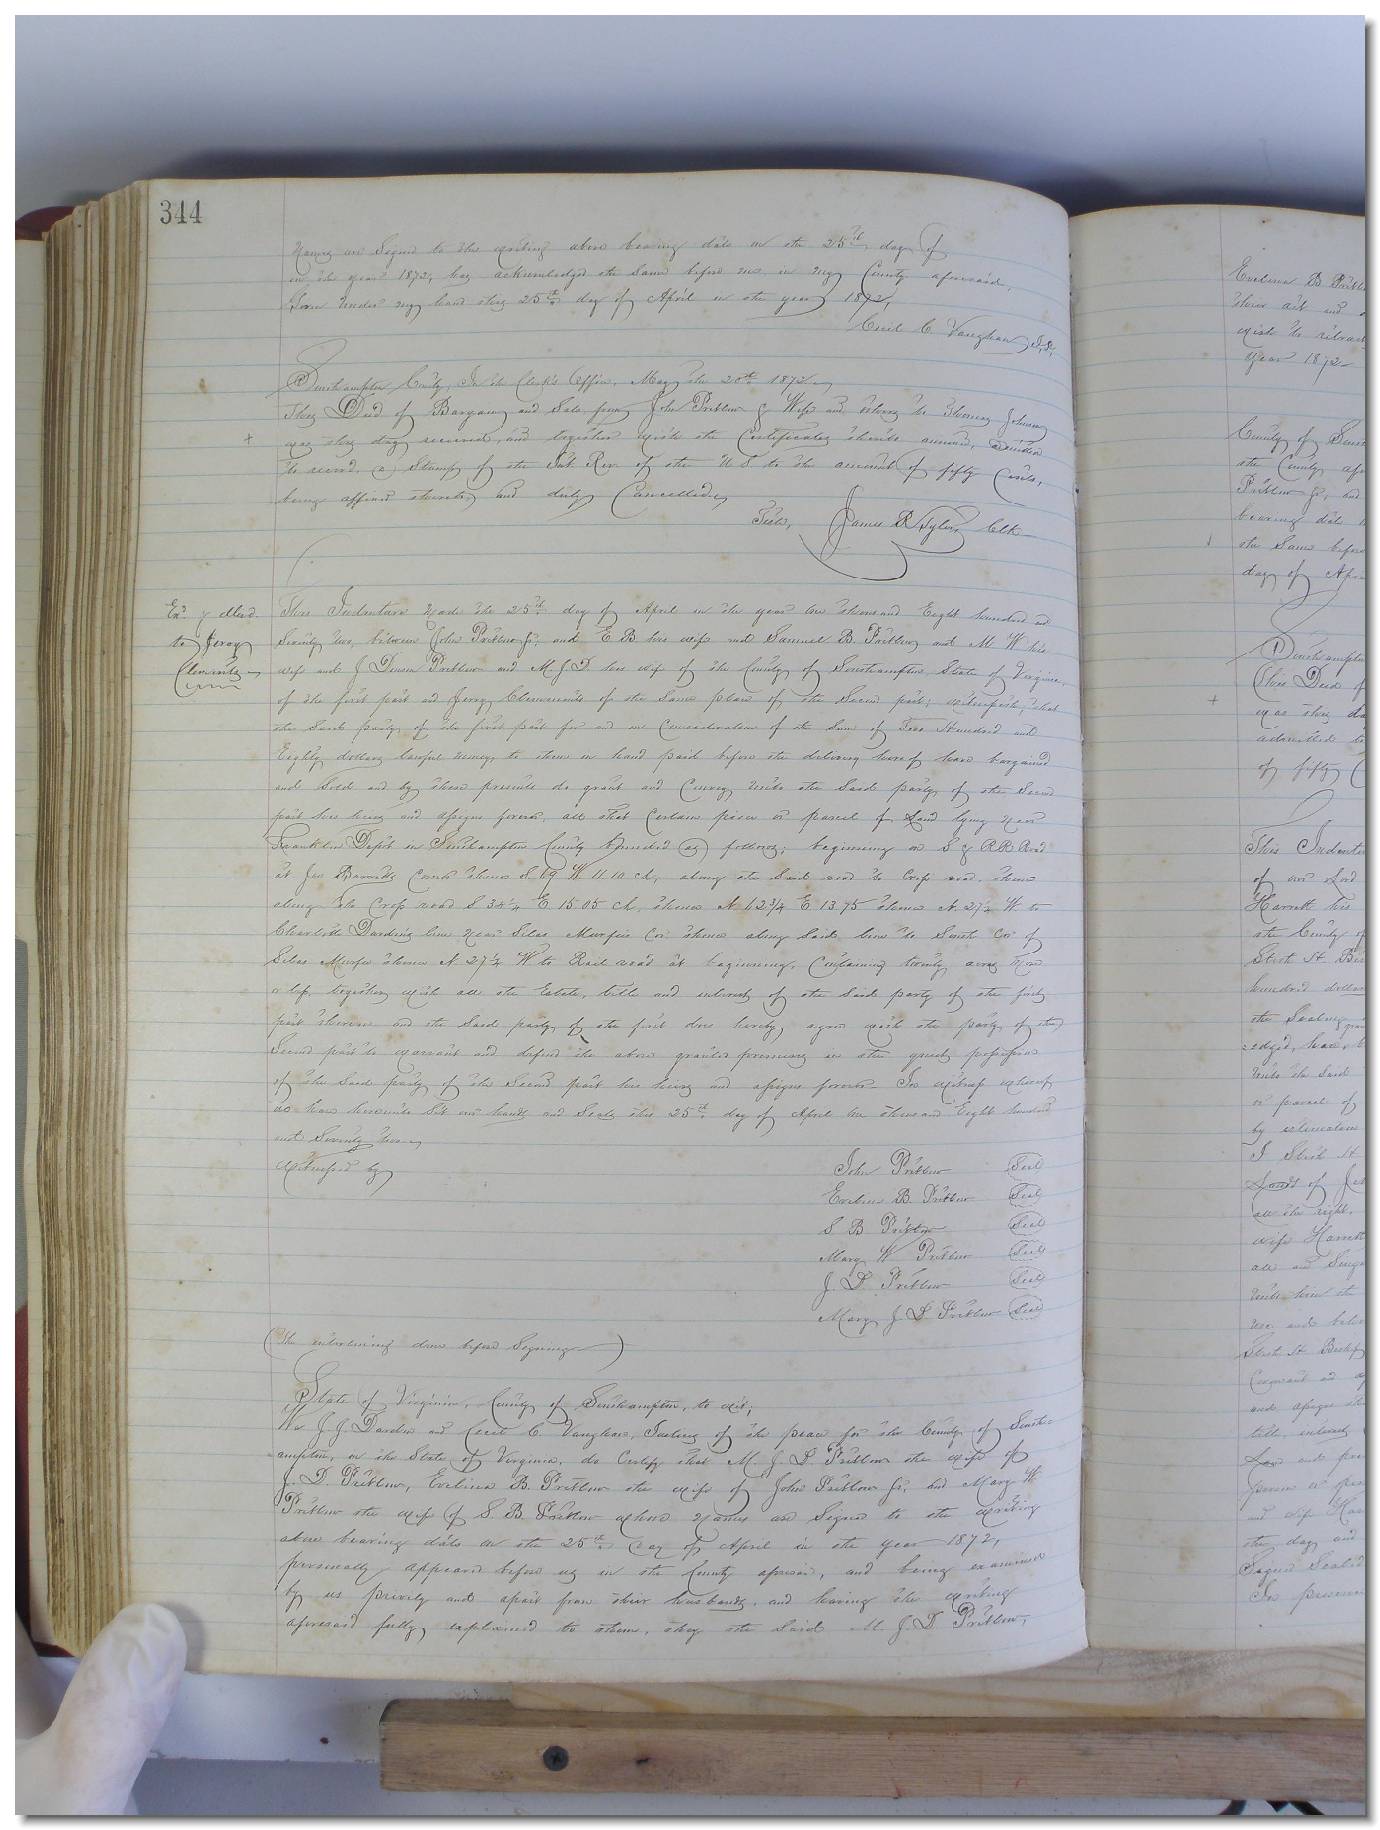 344
Names are Signed to the writing above bearing date on the 25th day of
in the year 1872, has acknowledged the same before me in my County aforesaid,
Given under my hand this 25th day of April in the year 1872,
Cecil C. Vaughan J.P.
Southampton County, In the Clerk's Office, May the 20th 1872
This Deed of Bargain and Sale from John Pretlow & Wife and others to Johnson
was this day received, and together with the Certificates thereto annexed, admitted
to record, a Stamp of the Int. Rev. of the U S to the amount of fifty Cents,
being affixed thereto, and duly Cancelled,
Teste, James R Tyler Clk
Exd & dld.
to Jerry
Clements
This Indenture made the 25th day of April in the year one thousand Eight hundred and
Seventy two, between John Pretlow Jr, and E B his wife and Samuel B. Pretlow and M W his
wife and J Denson Pretlow and M. J. D his wife of the County of Southampton, State of Virginia,
of the first part and Jerry Clements of the same place of the Second part; witnesseth, that
the Said party of the first part for and in Consideration of the Sum of Two Hundred and
Eighty dollars lawful money to them in hand paid before the delivery hereof have bargained
and Sold and by these presents do grant and Convey unto the Said party of the Second
part his heirs and assigns forever, all that Certain piece or parcel of Land lying near
Franklin Depot in Southampton County bounded as follows; beginning on S & R R R Road
at Corner thence S 69 W 11.10 ch, along the Said road to Cross road, thence
along the Cross road S 34 1/4 E 15.05 ch, thence N 62 3/4 E 13.75 thence N. 27 1/4 W. to
Charlotte line near Silas Murfee Cor thence along Said line to South Cor of
Silas Murfee thence N 27 1/4 W to Rail road at beginning, Containing twenty acres more
or less, together with all the Estate, title and interest of the Said party of the first
part therein and the Said party of the first does hereby, agree with the party of the
Second part to warrant and defend the above granted premises in the quiet possession
of the Said party of the Second part his heirs and assigns forever. In witness whereof
we have hereunto Set our hands and Seals this 25th day of April one thousand Eight hundred
and Seventy two,
Witnessed by
John Pretlow Seal
Evelina B. Pretlow Seal
S B Pretlow Seal
Mary W Pretlow Seal
J D Pretlow Seal
Mary J D Pretlow Seal
(The interlining done before Signing)
State of Virginia, County of Southampton, to wit;
We J J Darden and Cecil C. Vaughan, Justices of the peace for the County of South-
ampton, in the State of Virginia, do Certify that M. J D Pretlow the wife of
J. D. Pretlow, Evelina B. Pretlow the wife of John Pretlow Jr, and Mary W
Pretlow the wife of S. B. Pretlow whose names are Signed to the writing
above bearing date on the 25th day of April in the year 1872,
personally appeared before us in the County aforesaid, and being examined
by us privily and apart from their husbands, and having the writing
aforesaid fully explained to them, they the Said M. J D Pretlow,
Evelina B
their act and
wish to retract
year 1872
County of
the County
Pretlow Jr, and
bearing date
the Same before
day of
Southampton
This Deed of
was this
admitted to
of fifty
This
of our Lord
Harrett his
the County of
hundred dollars
the Sealing
unto the Said
or parcel of
by estimation
all the right,
wife
all and
unto him the
and assigns
title, interest
and
the day and
Signed Sealed
In presence